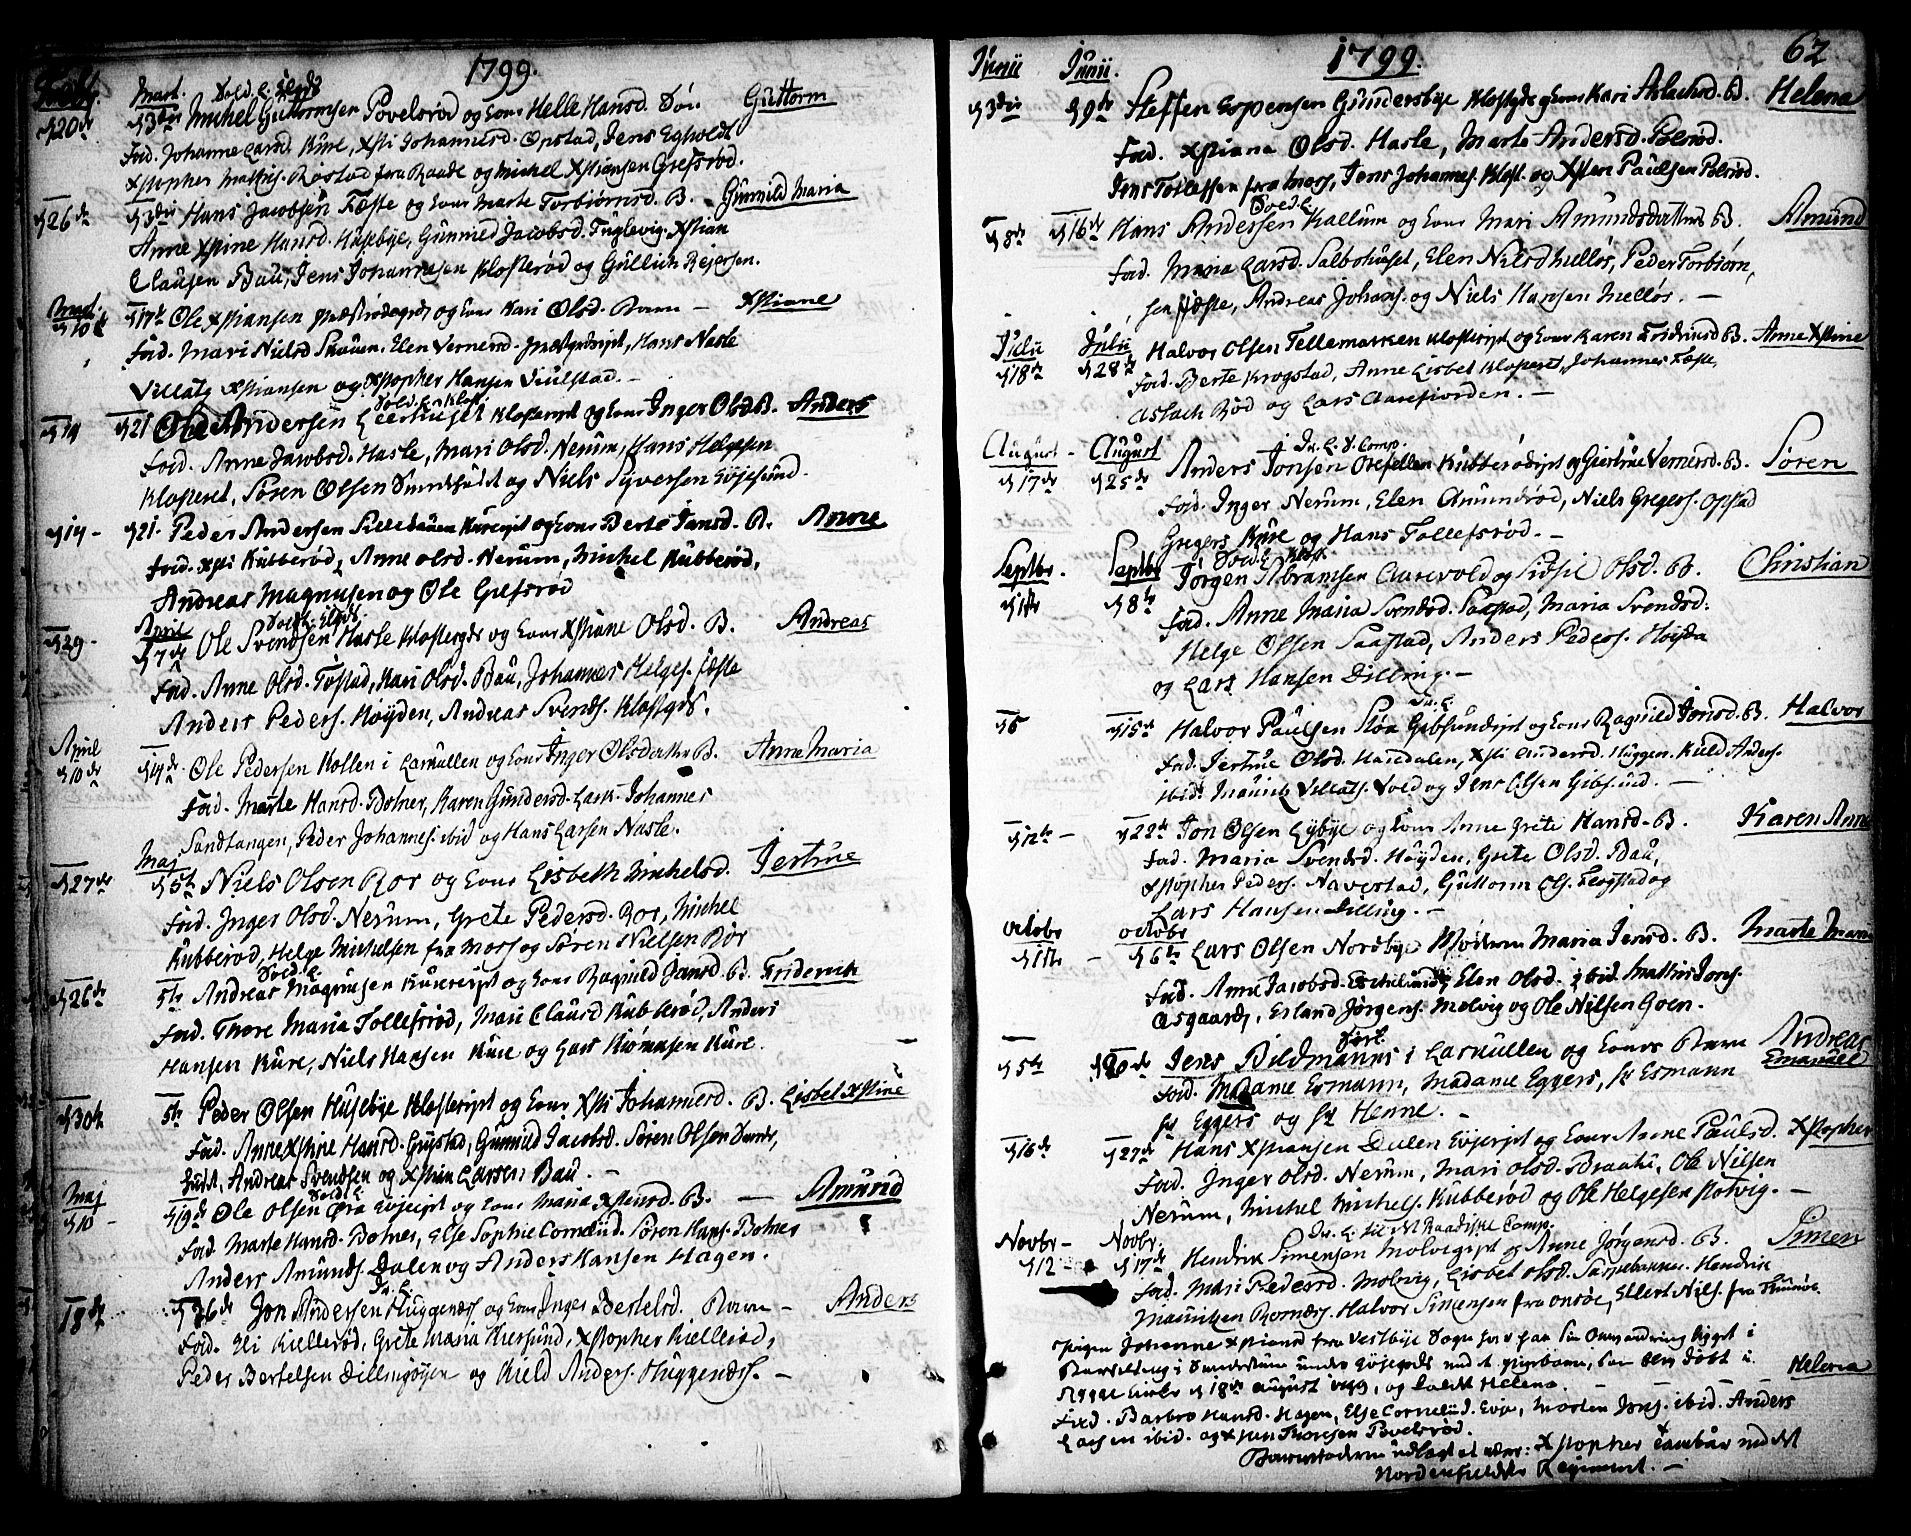 1799.
Mart. Sold. E.
d 20de d 3die Michel Guttormsen Povelsrød og hans Helle Hansd. Guttorm
Fad. Johanne Larsd. Kure, Xsti Johannesd. Opstad, Jens Egholdt
Xstopher Mathis. Rostad fra Raade og Michel Xstiansen Grefsrød.
d 26de d 3die Hans Jacobsen Feste og hans Marte Torbiørnsd. B. Gunnild Maria
Anne Xstine Hansd. Husebye, Gunnild Jacobsd. Fuglevig, Xstian
Clausen Bau, Jens Johannesen Klosterød og Gullich Rejersen.
Mart.
d 10de d 17de Ole Xstiansen Præstegrds og hans Kari Olsd. Barn – Xstiane
Fad. Mari Nielsd. Skauen, Elen Vernersd. Hans Nasle
Villats Xstiansen og Xstopher Hansen Viulstad. –
Sold. E. Klost.
d 14 d 21 Ole Andersen Leerhuset Klostericpt og hans Inger Olsd. B. Anders
Fad. Anne Jacobsd. Hasle, Mari Olsd. Nerum, Hans Helgesen
Klosteret, Søren Olsen og Niels Syversen Evjesund.
d 14 – d 21. Peder Andersen Sillebauen Kureicpt og hans Berte Jansd. B. Anne
Fad. Xsti Kubberød, Anne Olsd. Nerum, Michel Kubberød,
Andreas Magnusen og Ole Grefsrød
April Sold. E.
d 29 – d 7de Ole Svendsen Hasle Klostergds og hans Xstiane Olsd. B. Andreas
Fad. Anne Olsd. Tøstad, Kari Olsd. Bau, Johannes Helges. Feste
Anders Peders. Høyden, Andreas Svends. Klostgds.
April
d 10de d 14de Ole Pedersen Kollen i Larkullen og hans Inger Olsdatter B. Anne Maria
Fad. Marte Hansd. Botner, Karen Gundersd. Lark. Johannes
Sandtangen, Peder Johannes. ibid og Hans Larsen Nasle.
Maj
d 27de d 5te Niels Olsen Rør og hans Lisbeth Michelsd. Jertrue
Fad. Inger Olsd. Nerum, Grete Pedersd. Rør, Michel
Kubberød, Helge Michelsen fra Moss og Søren Nielsen Rør
Sold. E.
d 26de 5te Andreas Magnusen Kureicpt og hans Ragnild Jansd. B. Friderich
Fad. Thore Maria Tollefsrød, Mari Clausd Kubberød, Anders
Hansen Kure, Niels Hansen Kure og Lars Kure.
d 30de 5te Peder Olsen Husebye Klostericpt og hans Xsti Johannesd. B. Lisbet Xstine
Fad. Anne Xstine Hansd. Grystad, Gunnild Jacobsd. Søren Olsen
Andreas Svendsen og Xstian Larsen Bau. –
Maj Sold. E.
d 10 – d 19de Ole Olsen Evjeicpt og hans Maria Xstensd. B. — Amund
Fad. Marte Hansd. Botnes, Else Sophie Corneliid. Søren Hans. Botnes
Anders Amunds. Dalen og Anders Hansen Hagen.
18de d 26de Jon Andersen Huggenæs og hans Inger Bertelsd. Barn – Anders
Fad. Eli Kiellerød, Grete Maria Kiersund, Xstopher Kiellerød,
Peder Bertelsen Dillingøyen og Kield Anders. Huggenæs. –
Junii Junii. 1799. 62
d 3die d 9de Steffen Espensen Gundersbye Klostgds og hans Kari Aslachsd. B. Helena
Fad. Xstiana Olsd. Hasle, Marte Andersd. Polsrød.
Jens Tollefsen fra Moss, Jens Johannes. Klost. og Xsten Paulsen Polsrød.
Sold. E.
d 8de d 16de Hans Andersen Kallum og hans Mari Amundsdatters B. Amund
Fad. Maria Larsd. Salboehuset, Elen Nilsd Melløs, Peder Torbiørn,
sen Feste, Andreas Johans. og Niels Hansen Melløs. –
Julii Julii
d 18de d 28de Halvor Olsen Tellemarken Klostericpt og hans Karen Fredrichsd B. Anne Xstine
Fad. Berte Krogstad, Anne Lisbet Klosteret, Johannes Feste,
Aslach Rød og Lars Aarefiorden. –
August – August
d 17de d 25de Anders Jonsen Orefellen Kubberødicpt og Giertrue Vernersd. B. Søren
Fad. Inger Nerum, Elen Amundrød, Niels Gregers. Opstad
Gregers Kure og Hans Tollefsrød. –
Septbr. Septbr. Sold. E. Klost.
d 1ste d 8de Jørgen Abramsen Aarevold og Sidsil Olsd. B. Christian
Fad. Anne Maria Svendsd. Saastad, Maria Svendsd.
Helge Olsen Saastad, Anders Peders. Høyda
og Lars Hansen Dilling. –
d 5 d 15de Halvor Paulsen Støa Gibsundicpt og hans Ragnild Jonsd. B. Halvor
Fad. Jertrue Olsd. Hasedalen, Xsti Andersd. Huggen. Kield Anders.
ibid. Mauritz Villats. Vold og Jens Olsen Gibsund. –
d 12te – d 22de Jon Olsen Lybye og hans Anne Grete Hansd. B. Karen Anne
Fad. Maria Svendsd. Høyden, Grete Olsd. Bau,
Xstopher Peders. Navestad, Guttorm Ols. Teigstad og
Lars Hansen Dilling. –
Octobr Octobr
d 1ste – d 6te Lars Olsen Nordbye Moderen Maria Jensd. B. Marte Maria
Fad. Anne Jacobsd. Elen Olsd. ibid. Mathis Jons.
Asgaard, Erland Jørgens. Molvig og Ole Nilsen Goen.
d 5te d 20de Jens Bildmanns i Larkullen og hans Barn Andreas Emanuel
Fad. Madame Esmann, Madame Eggers, Hr Esmann
Hr Eggers og Hr Henne. –
d 16de d 27de Hans Xstiansen Dalen Evjeicpt og hans Anne Paulsd. Xstopher
Fad. Inger Olsd. Nerum, Mari Olsd. Braate, Ole Nilsen
Nerum, Michel Michels. Kubberød og Ole Helgesen Molvig. –
Novbr – Novbr. til det Raadiske Comp.
d 12 d 17de Hendrik Simensen Molvigicpt og Anne Jørgensd. B. Simen
Fad. Mari Pedersd. Molvig, Lisbet Olsd. Sarpebakken. Hendrik
Mauritzen Bornæs. Halvor Simensen fra Onsøe, Ellert Niels. fra Thunøe.
Pigen Johanne Xstiansd fra Vestbye Sogn har paa sin Omvandring ligget i
Barselseng i under Evjegrds med et Pigebarn, som blev døbt i
Rygge Kirke d 18de August 1799, og kaldt Helena. – Helena
Fad. Barbro Hansd. Hagen, Else Corneliid. Evje, Morten Jens. ibid. Anders
Larsen ibid. og Xsten Thoresen Povelsrød.
Barnefaderen udlagt at være: Xstopher Tambur ved det
Nordenfieldske Regiment. –